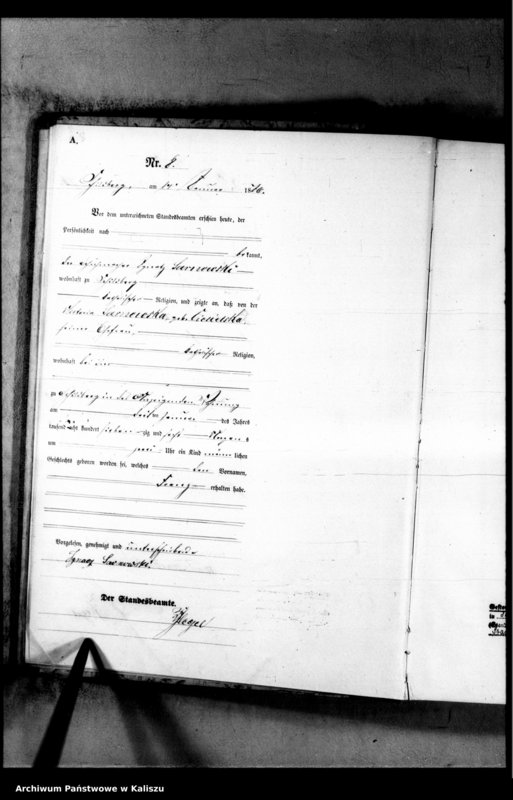 A.
Nr. 8.
am 18
Vor dem unterzeichneten Standesbeamten erschien heute, der
Persönlichkeit nach
bekannt,
Ignatz Sarnowski
wohnhaft zu Schildberg
katholischer Religion, und zeigte an, daß von der
Victoria Sarnowska geb. Ciesielska,
seiner Ehefrau,
katholischer Religion,
wohnhaft bei ihm
zu Schildberg in der Wohnung
am Januar des Jahres
tausend acht hundert sieben zig und sechs
um Uhr ein Kind männlichen
Geschlechts geboren worden sei, welches den Vornamen,
Franz erhalten habe.
Vorgelesen, genehmigt und unterschrieben
Ignatz Sarnowski
Der Standesbeamte.
in
Archiwum Państwowe w Kaliszu